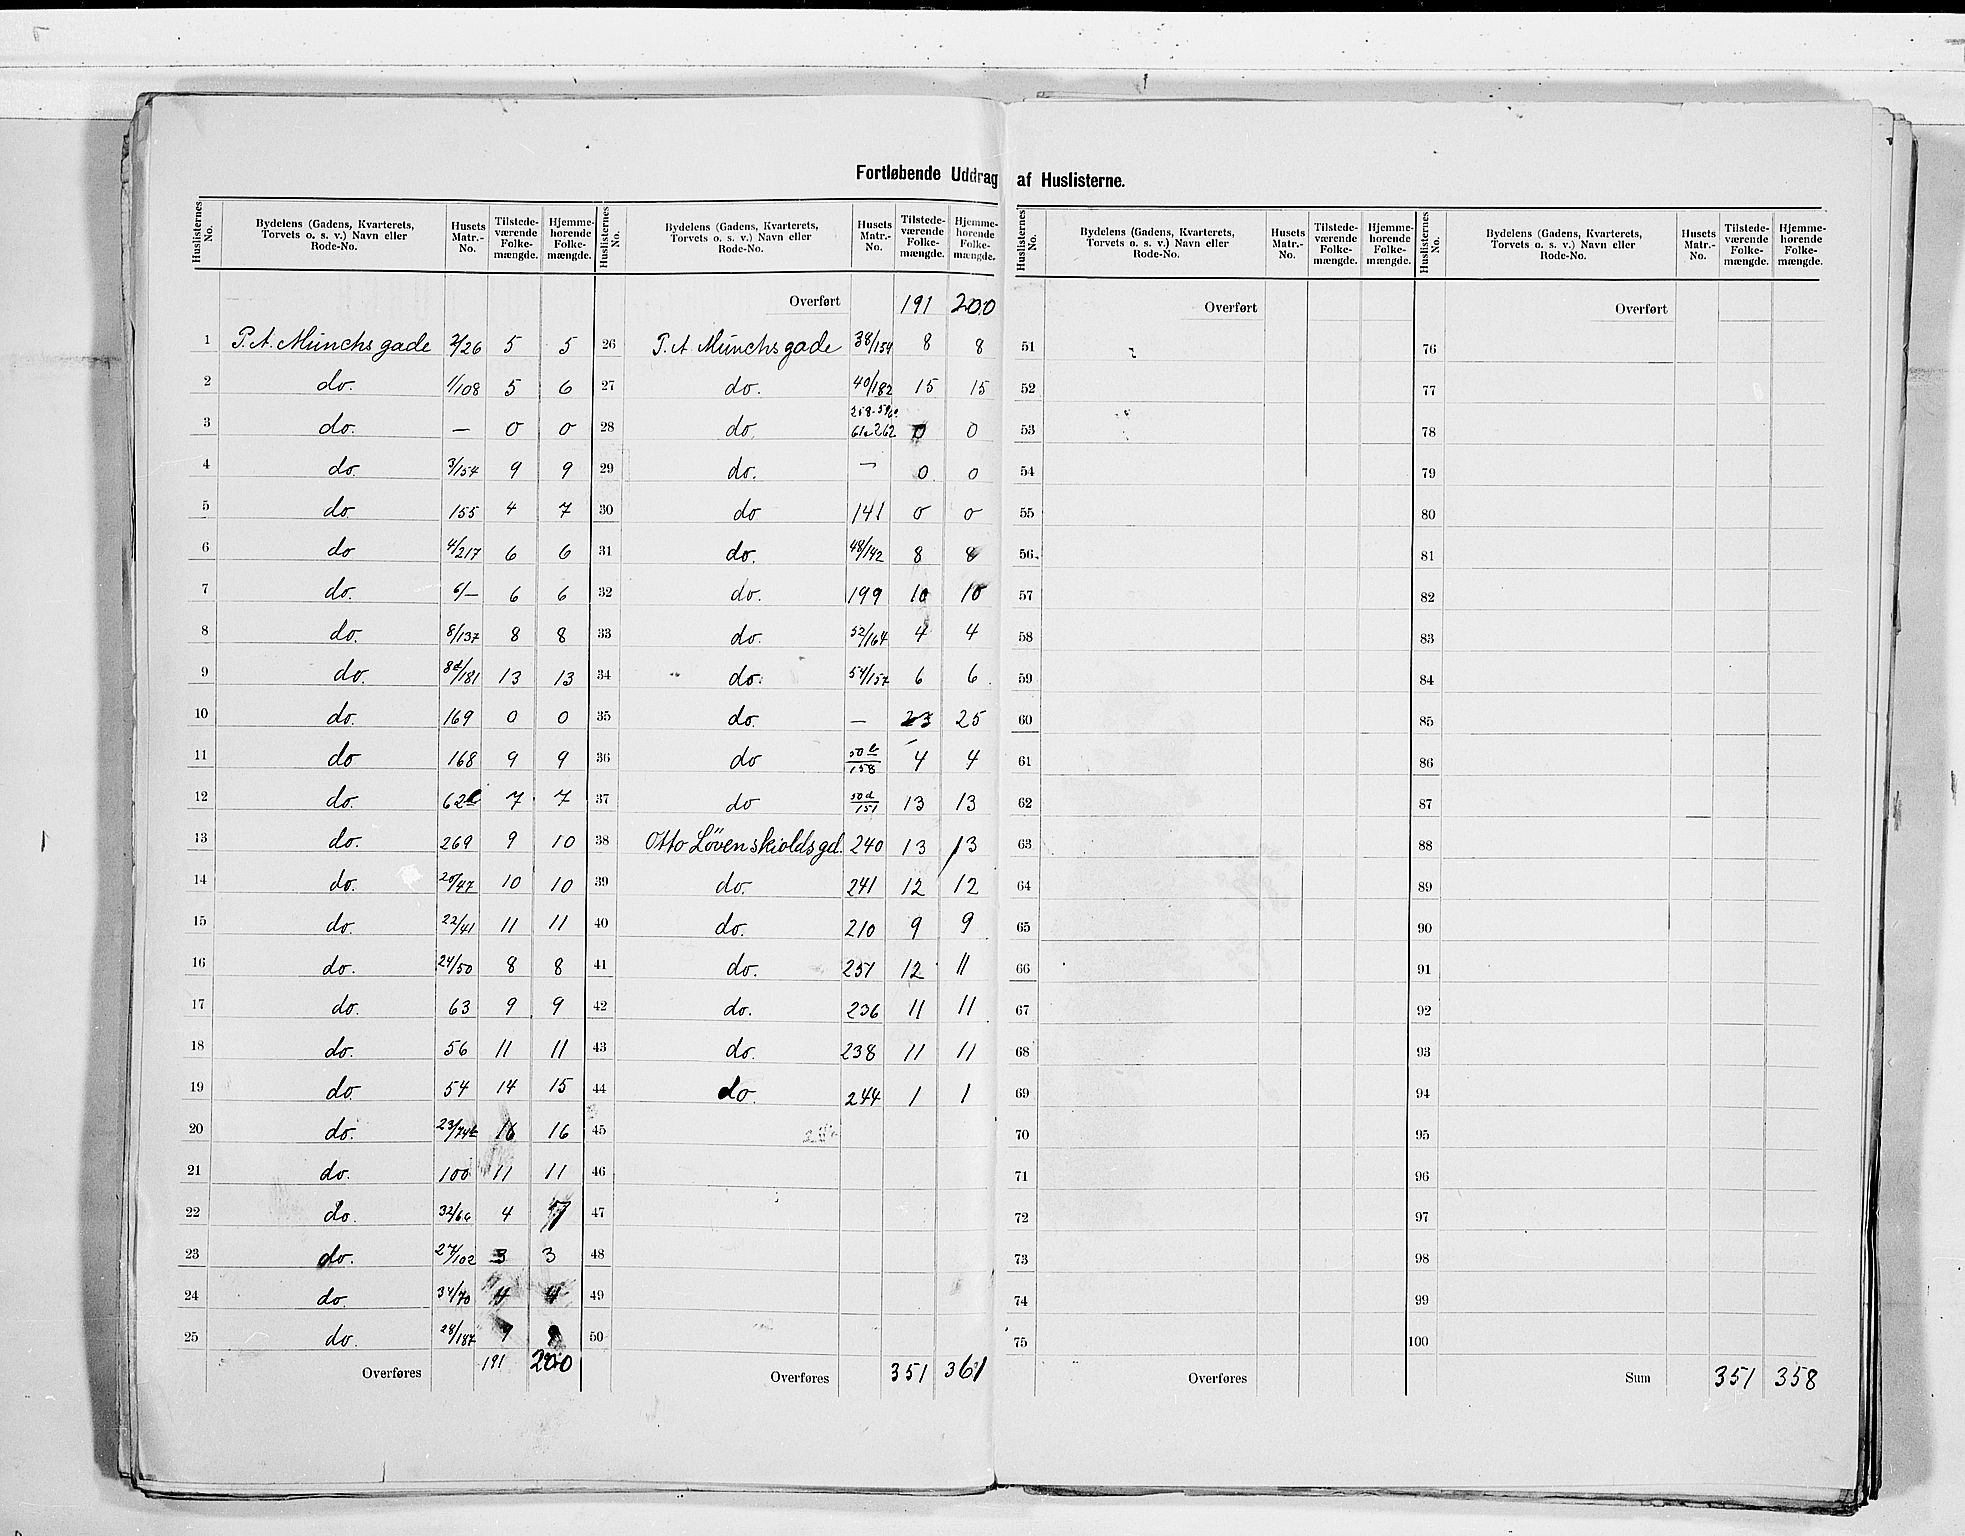 Fortløbende Uddrag af Huslisterne.
Huslisternes No. | Bydelens (Gadens, Kvarterets, Torvets o. s. v.) Navn eller Rode-No. | Husets Matr.-No. | Tilstede-værende Folke-mængde. | Hjemme-hørende Folke-mængde. | Huslisternes No. | Bydelens (Gadens, Kvarterets, Torvets o. s. v.) Navn eller Rode-No. | Husets Matr.-No. | Tilstede-værende Folke-mængde. | Hjemme-hørende Folke-mængde. | Huslisternes No. | Bydelens (Gadens, Kvarterets, Torvets o. s. v.) Navn eller Rode-No. | Husets Matr.-No. | Tilstede-værende Folke-mængde. | Hjemme-hørende Folke-mængde. | Huslisternes No. | Bydelens (Gadens, Kvarterets, Torvets o. s. v.) Navn eller Rode-No. | Husets Matr.-No. | Tilstede-værende Folke-mængde. | Hjemme-hørende Folke-mængde.
Overført 191 200 Overført Overført
1 P. A. Munchs gade 2/26 5 5 26 P. A. Munchs gade 38/154 8 8 51 76
2 do. 1/108 5 6 27 do. 40/182 15 15 52 77
3 do. — 0 0 28 do. 0 0 53 78
4 do. 3/154 9 9 29 do. — 0 0 54 79
5 do 155 4 7 30 do 141 0 0 55 80
6 do 4/217 6 6 31 do. 48/142 8 8 56 81
7 do. 6/— 6 6 32 do. 199 10 10 57 82
8 do. 8/137 8 8 33 do. 52/164 4 4 58 83
9 do. 8d/181 13 13 34 do. 54/157 6 6 59 84
10 do. 169 0 0 35 do. — 23 25 60 85
11 do 168 9 9 36 do 50b/158 4 4 61 86
12 do. 62 7 7 37 do 50d/151 13 13 62 87
13 do. 269 9 10 38 Otto Løvenskioldsgd. 240 13 13 63 88
14 do. 20/47 10 10 39 do. 241 12 12 64 89
15 do. 22/41 11 11 40 do. 210 9 9 65 90
16 do. 24/50 8 8 41 do. 251 12 11 66 91
17 do. 63 9 9 42 do. 236 11 11 67 92
18 do. 56 11 11 43 do. 238 11 11 68 93
19 do. 54 14 15 44 do. 244 1 1 69 94
20 do. 23/74b 16 16 45 70 95
21 do. 100 11 11 46 71 96
22 do. 32/66 4 7 47 72 97
23 do. 27/102 3 3 48 73 98
24 do. 34/70 4 4 49 74 99
25 do. 28/187 9 9 50 75 100
Overføres 191 200 Overføres 351 361 Overføres Sum 351 358